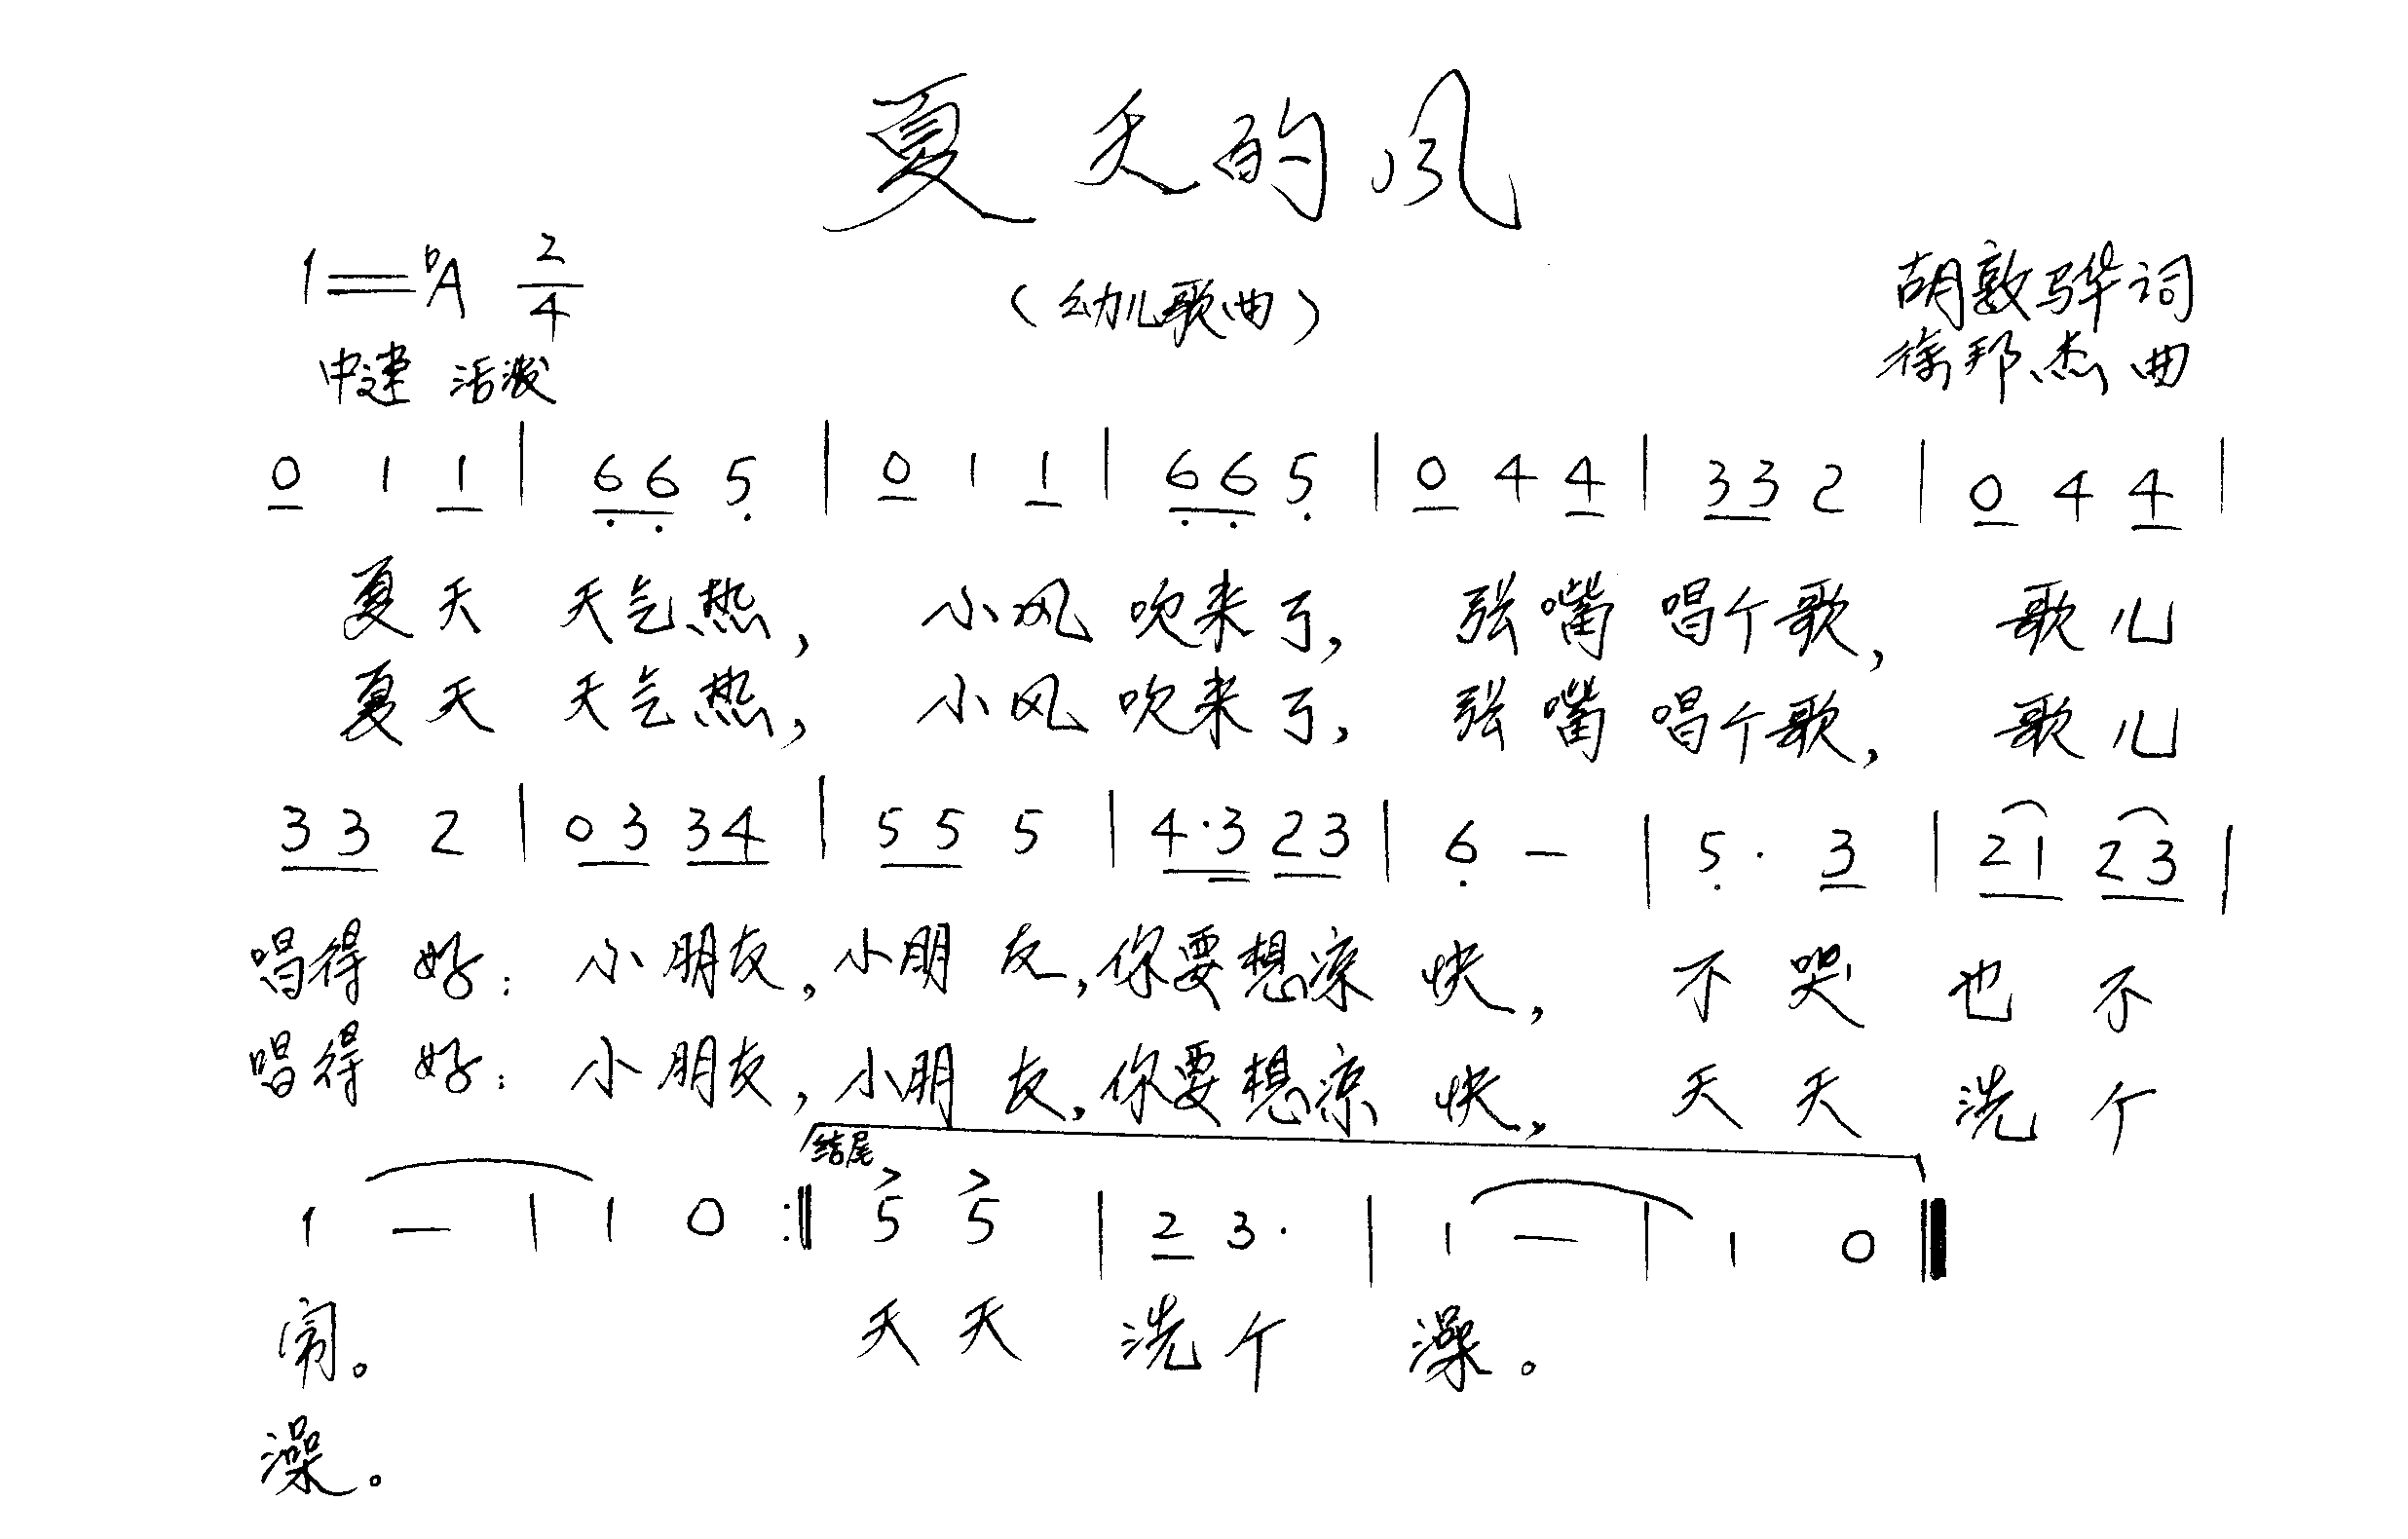 夏天的风
1=♭A 2/4
(幼儿歌曲)
胡敦骅词
中速 活泼
徐邦杰曲
0 1 1 | 6 6 5 | 0 1 1 | 6 6 5 | 0 4 4 | 3 3 2 | 0 4 4 |
夏天 天气热, 小风 吹来了, 张嘴 唱个歌, 歌儿
夏天 天气热, 小风 吹来了, 张嘴 唱个歌, 歌儿
3 3 2 | 0 3 3 4 | 5 5 5 | 4·3 2 3 | 6 - | 5· 3 | 2 1 2 3 |
唱得 好: 小朋友, 小朋友, 你要想凉 快, 不哭也不
唱得 好: 小朋友, 小朋友, 你要想凉 快, 天天洗个
结尾
1 - | 1 0 :‖ 5 5 | 2 3· | 1 - | 1 0 ‖
闹。 天天 洗个 澡。
澡。